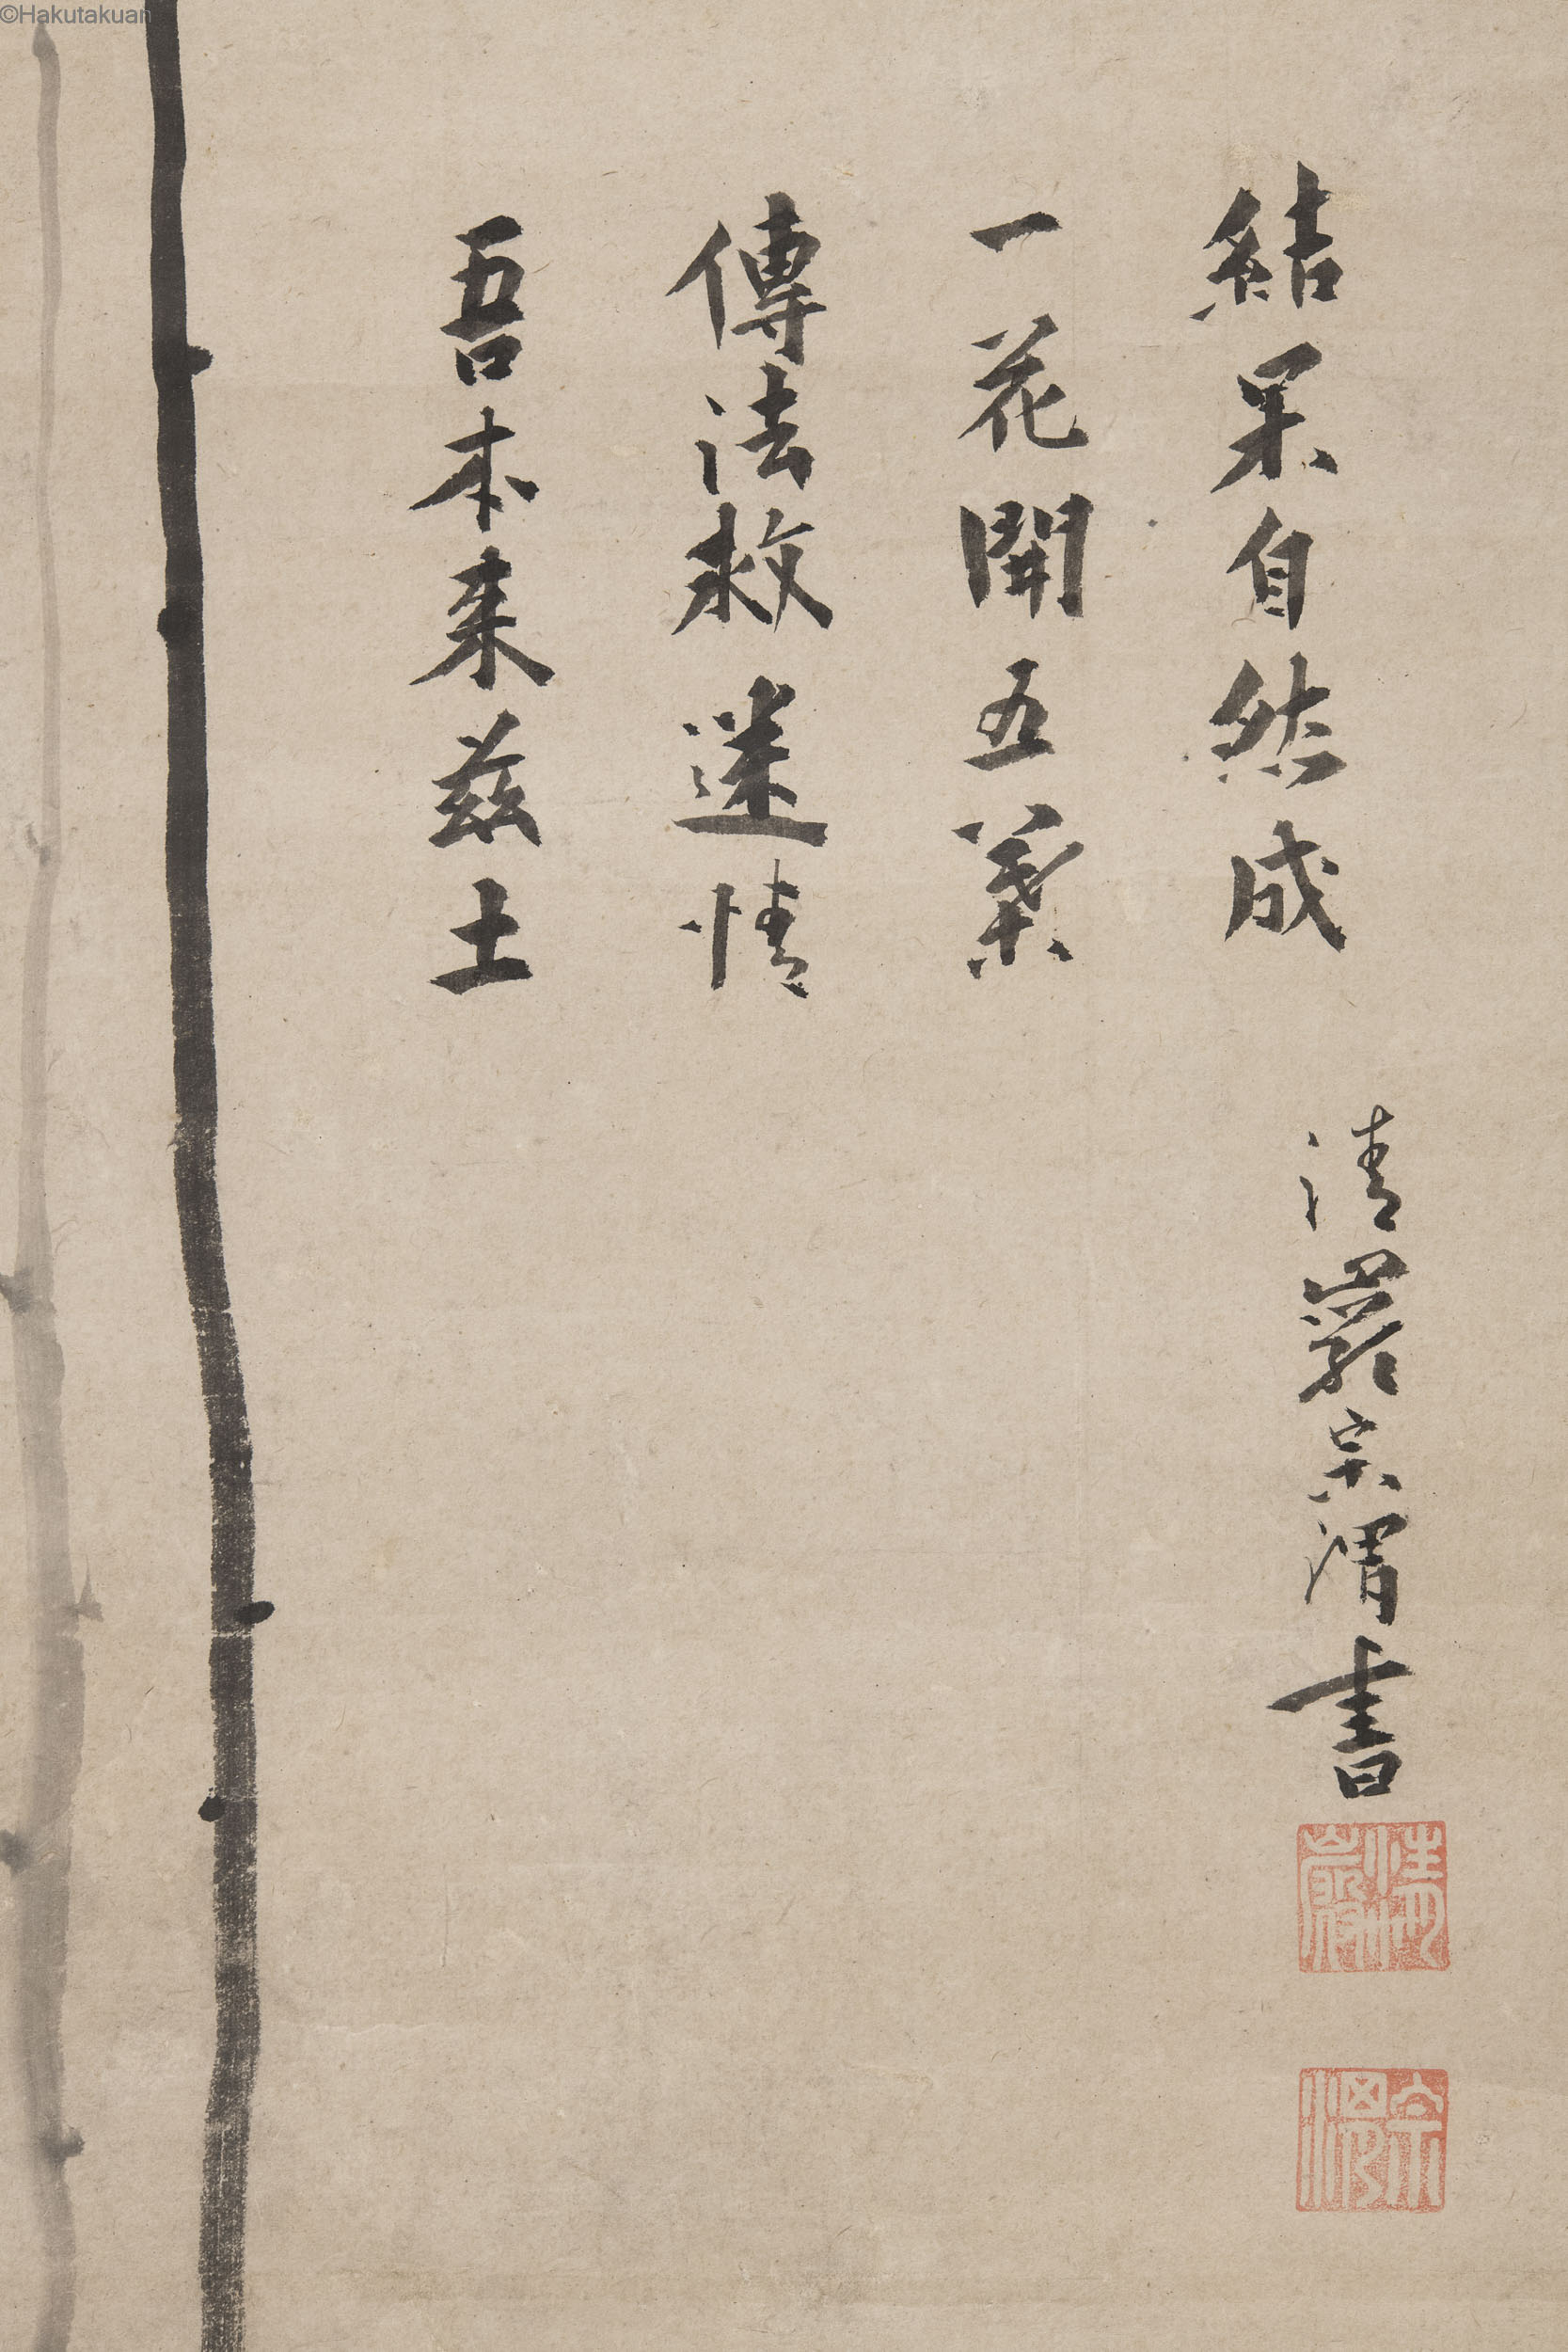 ©Hakutakuan
吾本来兹土
傳法救迷情
一花開五葉
結果自然成
清巖宗渭書
清巖
宗渭